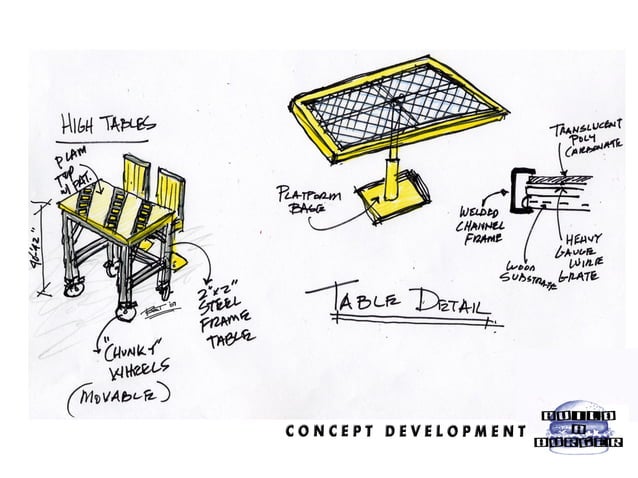 HIGH TABLES
PLAM
TOP
W/ PAT.
2"x2"
STEEL
FRAME
TABLE
"CHUNKY"
WHEELS
(MOVABLE)
PLATFORM
BASE
TRANSLUCENT
POLY
CARBONATE
WELDED
CHANNEL
FRAME
WOOD
SUBSTRATE
HEAVY
GAUGE
WIRE
GRATE
TABLE DETAIL
CONCEPT DEVELOPMENT
BUILD
A
BURGER